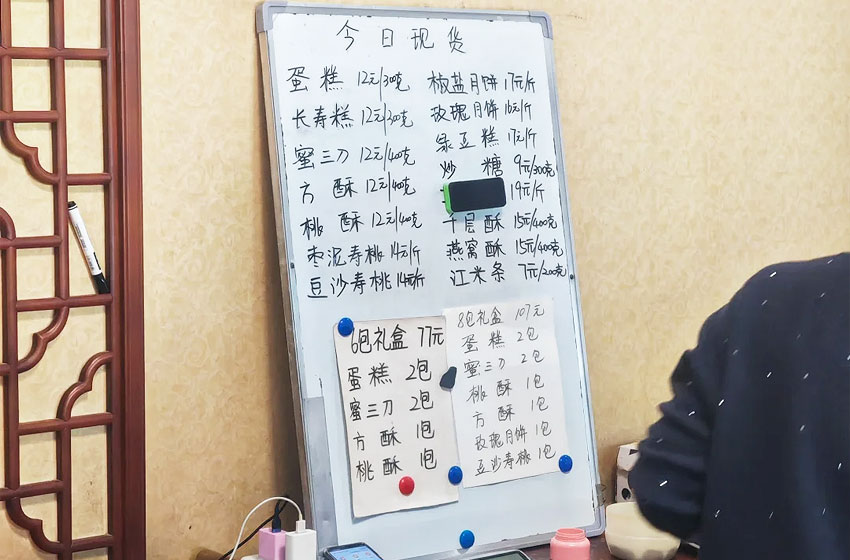 今日现货
蛋糕 12元/300克
长寿糕 12元/300克
蜜三刀 12元/400克
方酥 12元/400克
桃酥 12元/400克
枣泥寿桃 14元/斤
豆沙寿桃 14元/斤
椒盐月饼 17元/斤
玫瑰月饼 16元/斤
绿豆糕 17元/斤
炒糖 9元/300克
19元/斤
千层酥 15元/400克
燕窝酥 15元/400克
江米条 7元/200克
6包礼盒 77元
蛋糕 2包
蜜三刀 2包
方酥 1包
桃酥 1包
8包礼盒 107元
蛋糕 2包
蜜三刀 2包
桃酥 1包
方酥 1包
玫瑰月饼 1包
豆沙寿桃 1包